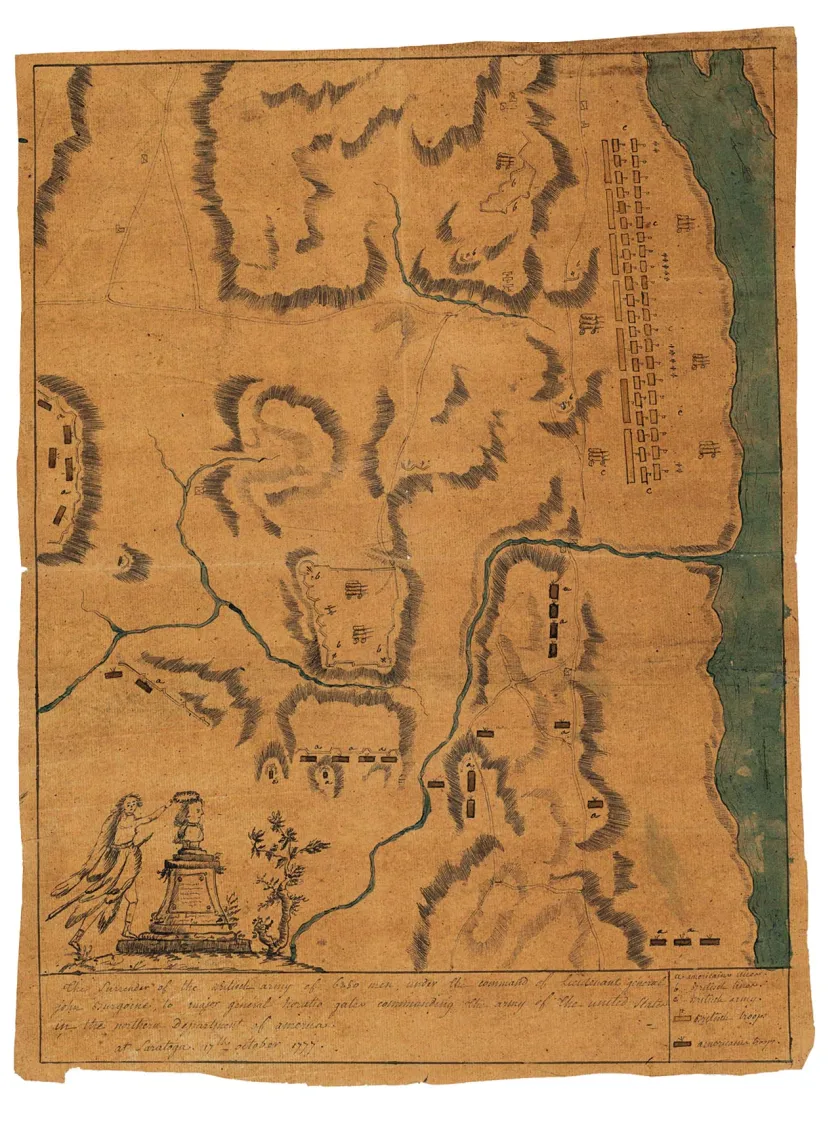 The Surrender of the british army of 6350 men, under the command of lieutenant general
john Burgoine, to major general horatio gates commanding the army of the united States
in the northern Department of american.
at Saratoga. 17th october 1777.
a. american lines
b. british lines
british army.
british troops
american troops